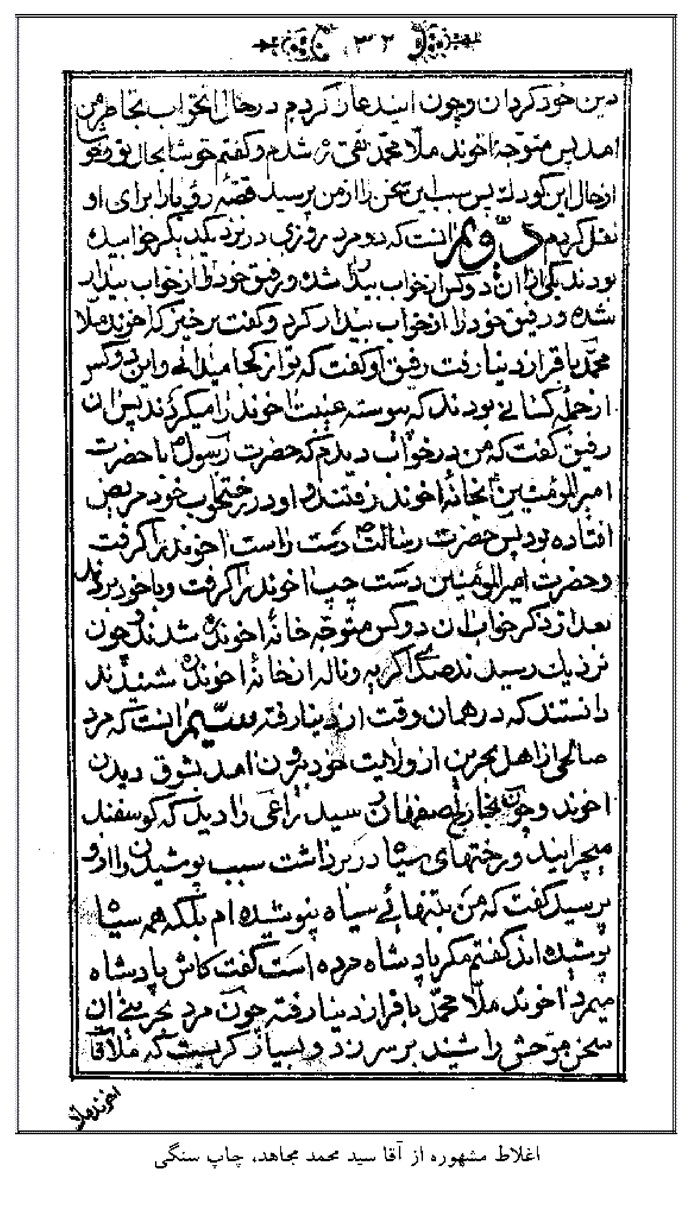 ۳۲
دین خود کردان و چون ایندعا را کردم در حال انخواب بخاطر من
امد پس متوجه اخوند ملا محمد تقی ره شدم و کفتم خوشا بحال تو و خوشا
از حال این کودك پس سبب این سخن را از من پرسید قصهٔ رؤیا را برای او
نقل کردم دوّیم انست که دو مرد روزی در نزد یکدیکر خوابیده
بودند یکی از ان دو کس از خواب بیدار شده و رفیق خود را از خواب بیدار
شده و رفیق خود را از خواب بیدار کرد و کفت برخیز که اخوند ملا
محمّد باقر از دنیا رفت رفیق او کفت که تو از کجا میدانی و این دو کس
از جمله کسانی بودند که پیوسته غیبت اخوند را میکردند پس ان
رفیق کفت که من در خواب دیدم که حضرت رسول ص با حضرت
امیرالمومنین ع بخانهٔ اخوند رفتند و او در رختخواب خود مریض
افتاده بود پس حضرت رسالت ص دست راست اخوند را کرفت
و حضرت امیرالمومنین دست چپ اخوند را کرفت و با خود بردند
بعد از ذکر خواب ان دو کس متوجه خانهٔ اخوند ره شدند و چون
نزدیك رسیدند صدای کریه و ناله از خانهٔ اخوند ره شنیدند
دانستند که در همان وقت از دنیا رفته سیّیم انست که مرد
صالحی از اهل بحرین از ولایت خود بیرون امد بشوق دیدن
اخوند و چون بخارج اصفهان رسید راعی را دید که کوسفند
میچرانید و رختهای سیاه در بر داشت سبب پوشیدن را از او
پرسید کفت که من بتنهائی سیاه نپوشیده ام بلکه همه سیاه
پوشیده اند کفتم مکر پادشاه مرده است کفت کاش پادشاه
میمرد اخوند ملا محمّد باقر از دنیا رفته چون مرد بحرینی ان
سخن موحش را شنید بر سر زد و بسیار کریست که ملا اقا
اخوند ملا
اغلاط مشهوره از آقا سید محمد مجاهد، چاپ سنگی